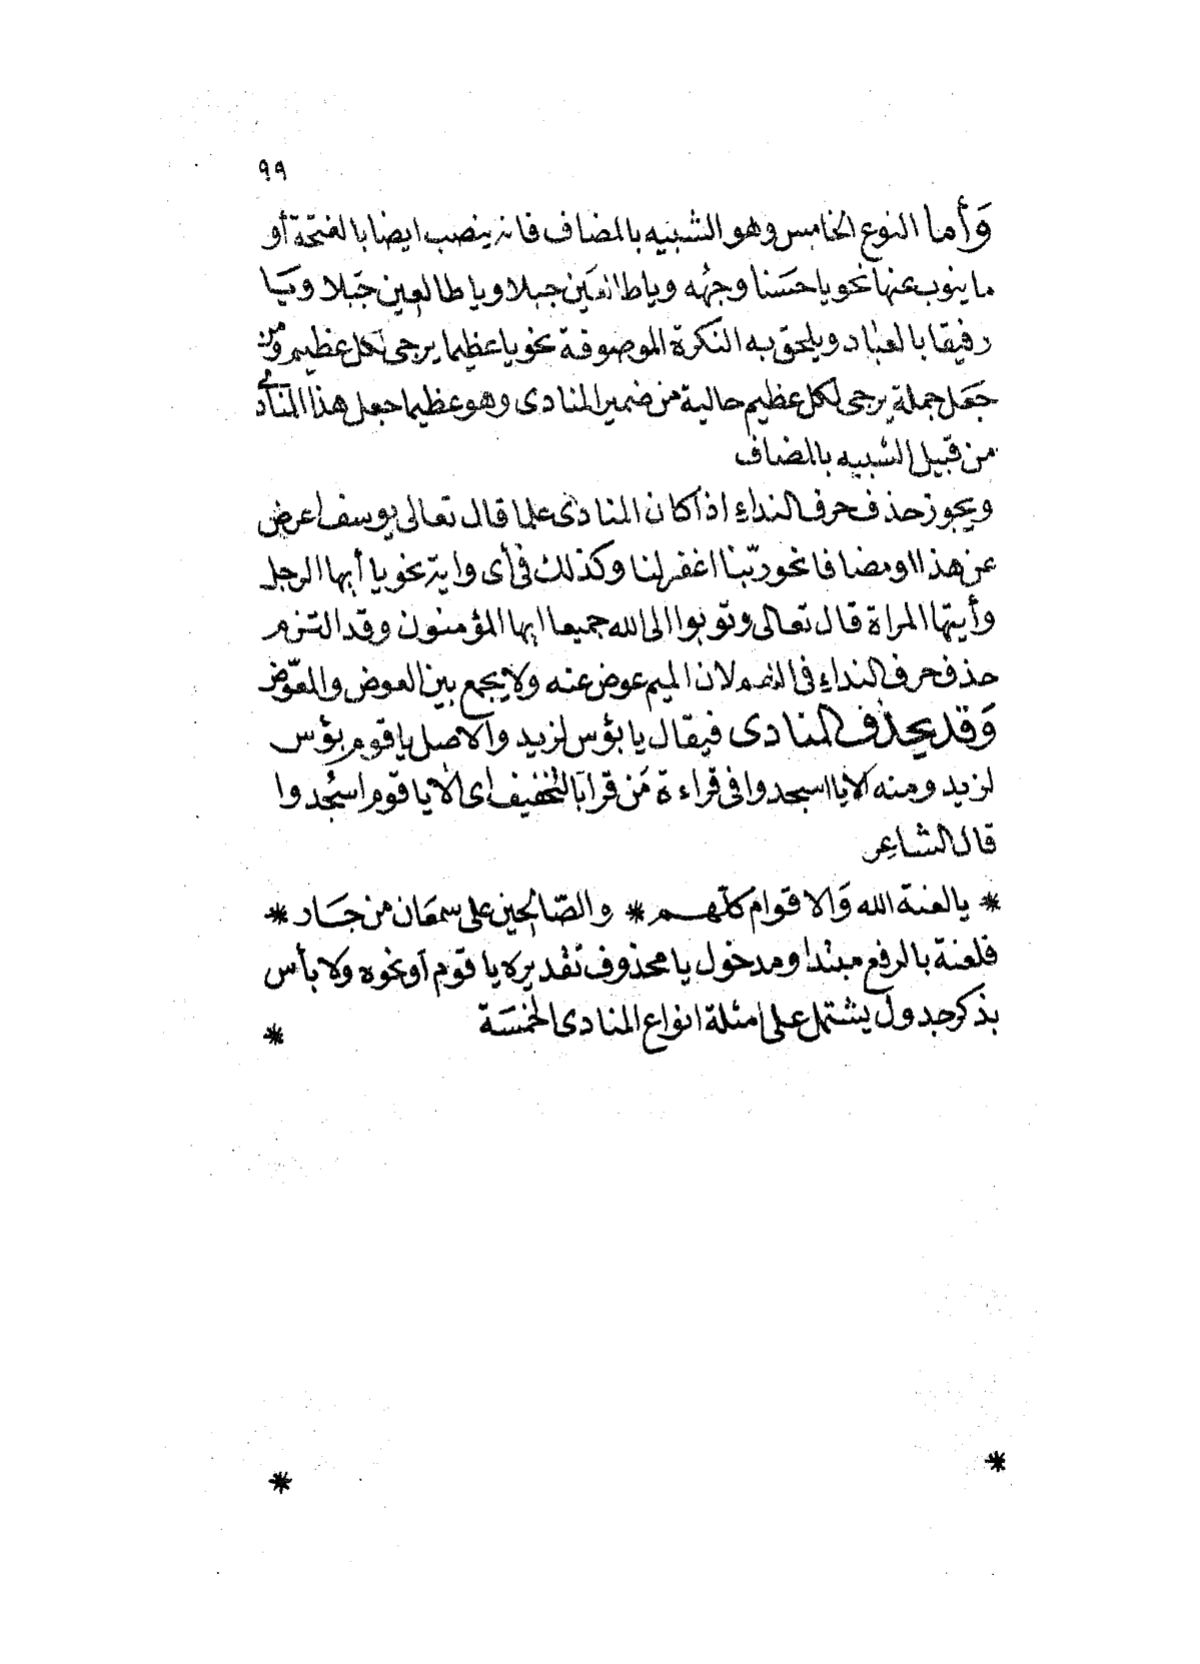 ٩٩
وَأما النوع الخامس وهو الشبيه بالمضاف فانه ينصب ايضا بالفتحة أو
ما ينوب عنها نحو يا حسَنا وجهُه ويا طالعَين جبلا ويا طالعِين جَبلا وَيا
رفيقا بالعباد ويلحق به النكرة الموصوفة نحو يا عظيما يرجى لكل عظيم ومن
جَعَل جملة يرجى لكل عظيم حالية من ضمير المنادى وهو عظيما جعل هذا المنادى
من قبيل الشبيه بالمضاف
ويجوز حذف حرف النداءِ اذا كان المنادى علما قال تعالى يوسف اعرض
عن هذا او مضافا نحو ربّنا اغفر لنا وكذلك في أى واية نحو يا أيها الرجل
وأيتها المراة قال تعالى وتوبوا الى الله جميعا ايها المؤمنون وقد التزم
حذف حرف النداءِ فى اللهم لان الميم عوض عنه ولا يجمع بين العوض والمعّوض
وَقد يحذف المنادى فيقال يا بؤس لزيد والاصل يا قوم بؤس
لزيد ومنه الا يا اسجدوا فى قراءة مَن قرا بالتخفيف اى الا يا قوم اسْجدوا
قال الشاعِر
* يا لعنة الله وَالاقوام كلّهم * والصّالحين على سمعَان من جَار *
فلعنة بالرفع مبتدا ومدخول يا محذوف تقديره يا قوم أو نحوه ولا بأس
بذكر جدول يشتمل على امثلة انواع المنادى الخمسَة *
* *